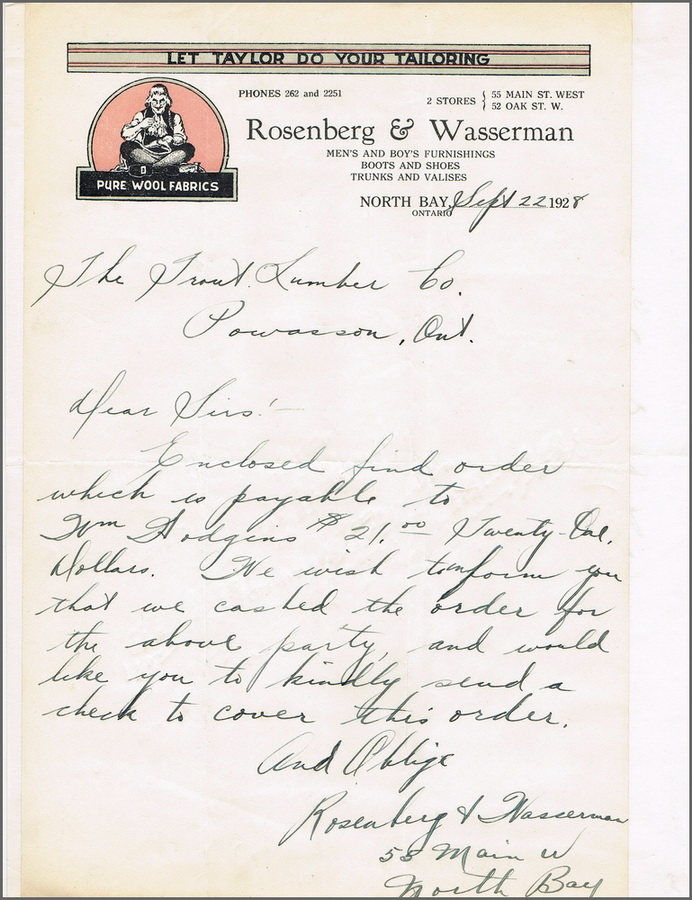 LET TAYLOR DO YOUR TAILORING
PURE WOOL FABRICS
PHONES 262 and 2251
2 STORES { 55 MAIN ST. WEST
52 OAK ST. W.
Rosenberg & Wasserman
MEN'S AND BOY'S FURNISHINGS
BOOTS AND SHOES
TRUNKS AND VALISES
NORTH BAY, Sept 22 1928
ONTARIO
The Trout Lumber Co.
Powasson, Ont.
Dear Sirs:-
Enclosed find order
which is payable to
Wm Hodgins $21.00 Twenty-One
Dollars. We wish to inform you
that we cashed the order for
the above party, and would
like you to kindly send a
check to cover this order.
And Oblige
Rosenberg & Wasserman
55 Main W
North Bay